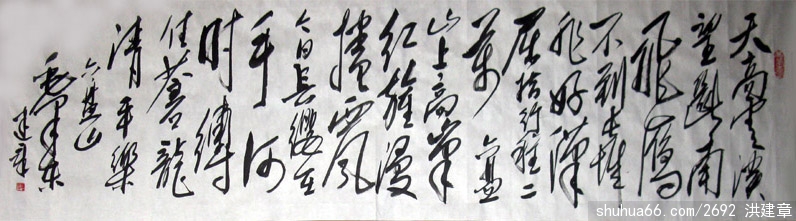 天高雲淡
望斷南
飛雁
不到长城
非好漢
屈指行程二
萬 六盘
山上高峯
红旗漫
捲西風
今日長缨在
手何
时縛
住蒼龍
清平樂
六盘山
毛泽东
建章
shuhua66.com/2692 洪建章